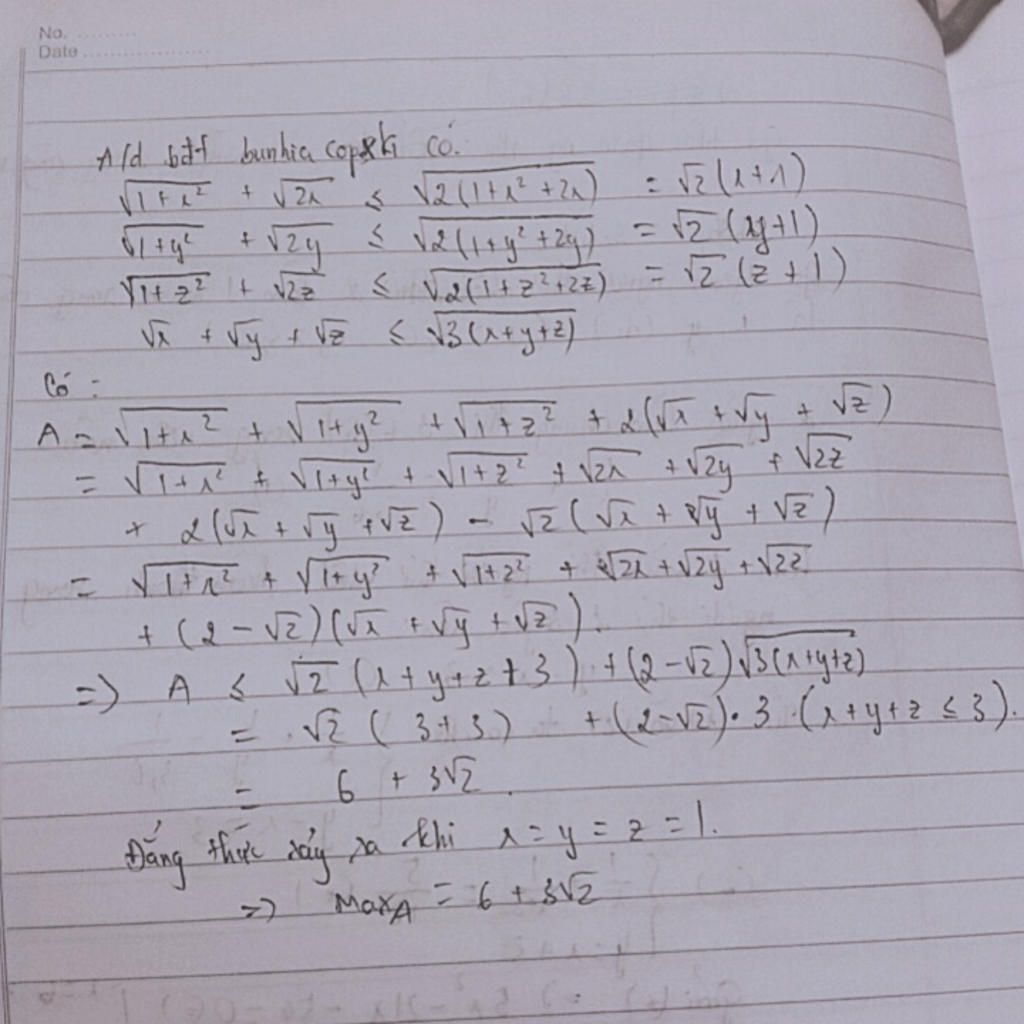 No. ..........
Date ..................
A/d bđt bunhia copxki có.
√(1+x²) + √(2x) ≤ √(2(1+x²+2x)) = √2(x+1)
√(1+y²) + √(2y) ≤ √(2(1+y²+2y)) = √2(y+1)
√(1+z²) + √(2z) ≤ √(2(1+z²+2z)) = √2(z+1)
√x + √y + √z ≤ √(3(x+y+z))
Có :
A = √(1+x²) + √(1+y²) + √(1+z²) + 2(√x + √y + √z)
= √(1+x²) + √(1+y²) + √(1+z²) + √(2x) + √(2y) + √(2z)
+ 2(√x + √y + √z) - √2(√x + √y + √z)
= √(1+x²) + √(1+y²) + √(1+z²) + √(2x) + √(2y) + √(2z)
+ (2-√2)(√x + √y + √z).
=> A ≤ √2(x+y+z+3) + (2-√2)√(3(x+y+z))
= √2(3+3) + (2-√2).3 (x+y+z ≤ 3).
= 6 + 3√2.
Đẳng thức xảy ra khi x = y = z = 1.
=> Max_A = 6 + 3√2